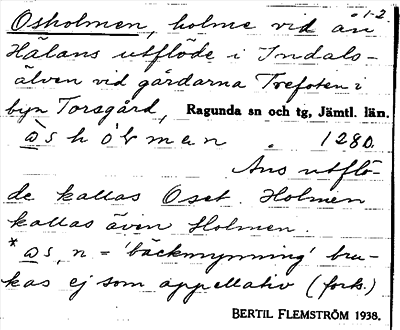 Osholmen, holme vid ån 1-2
Hälans utflöde i Indals-
älven vid gårdarna Trefoten i
byn Torsgård, Ragunda sn och tg, Jämtl. län.
1280.
Åns utflö-
de kallas Oset. Holmen
kallas även Holmen.
n = 'bäckmynning' bru-
kas ej som appellativ (forts.)
BERTIL FLEMSTRÖM 1938.